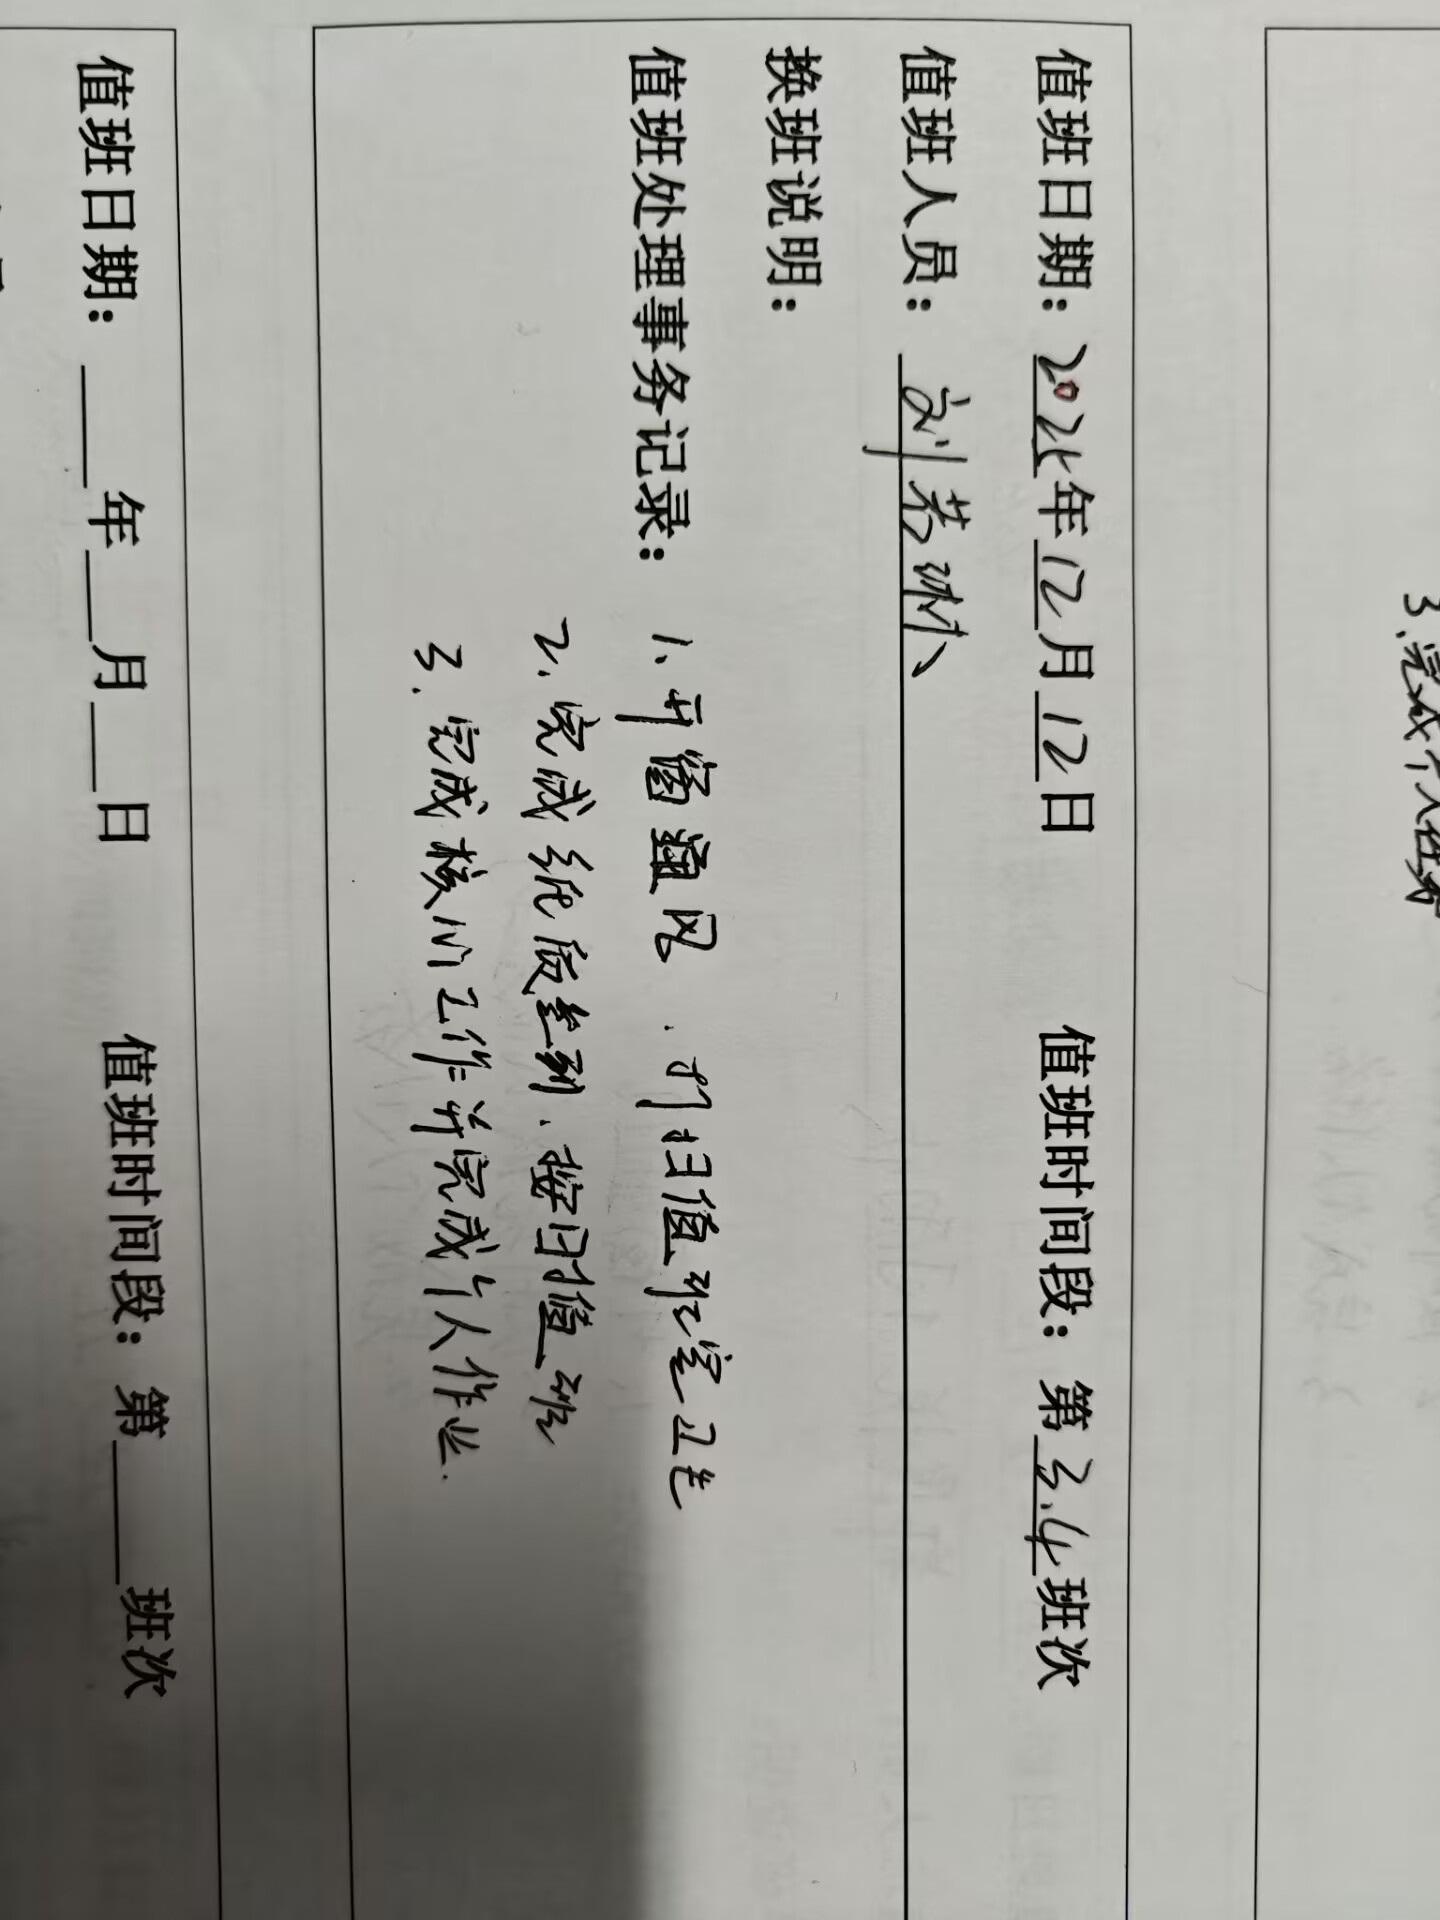 3.完成个人任务
值班日期：2025年12月12日 值班时间段：第3.4班次
值班人员：刘若琳
换班说明：
值班处理事务记录：1、开窗通风、打扫值班室卫生
2、完成纸质签到、按时值班
3.完成核心工作并完成个人作业.
值班日期：____年___月___日 值班时间段：第_____班次